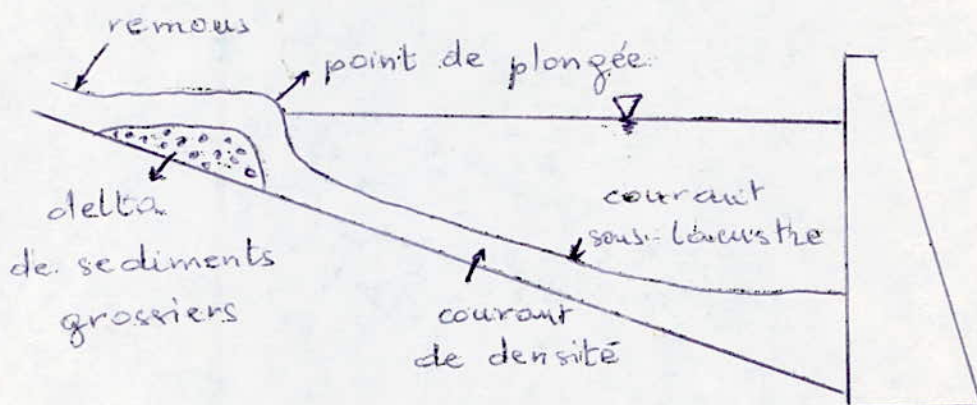 remous
point de plongée
delta
de sediments
grossiers
courant
sous-lacustre
courant
de densité